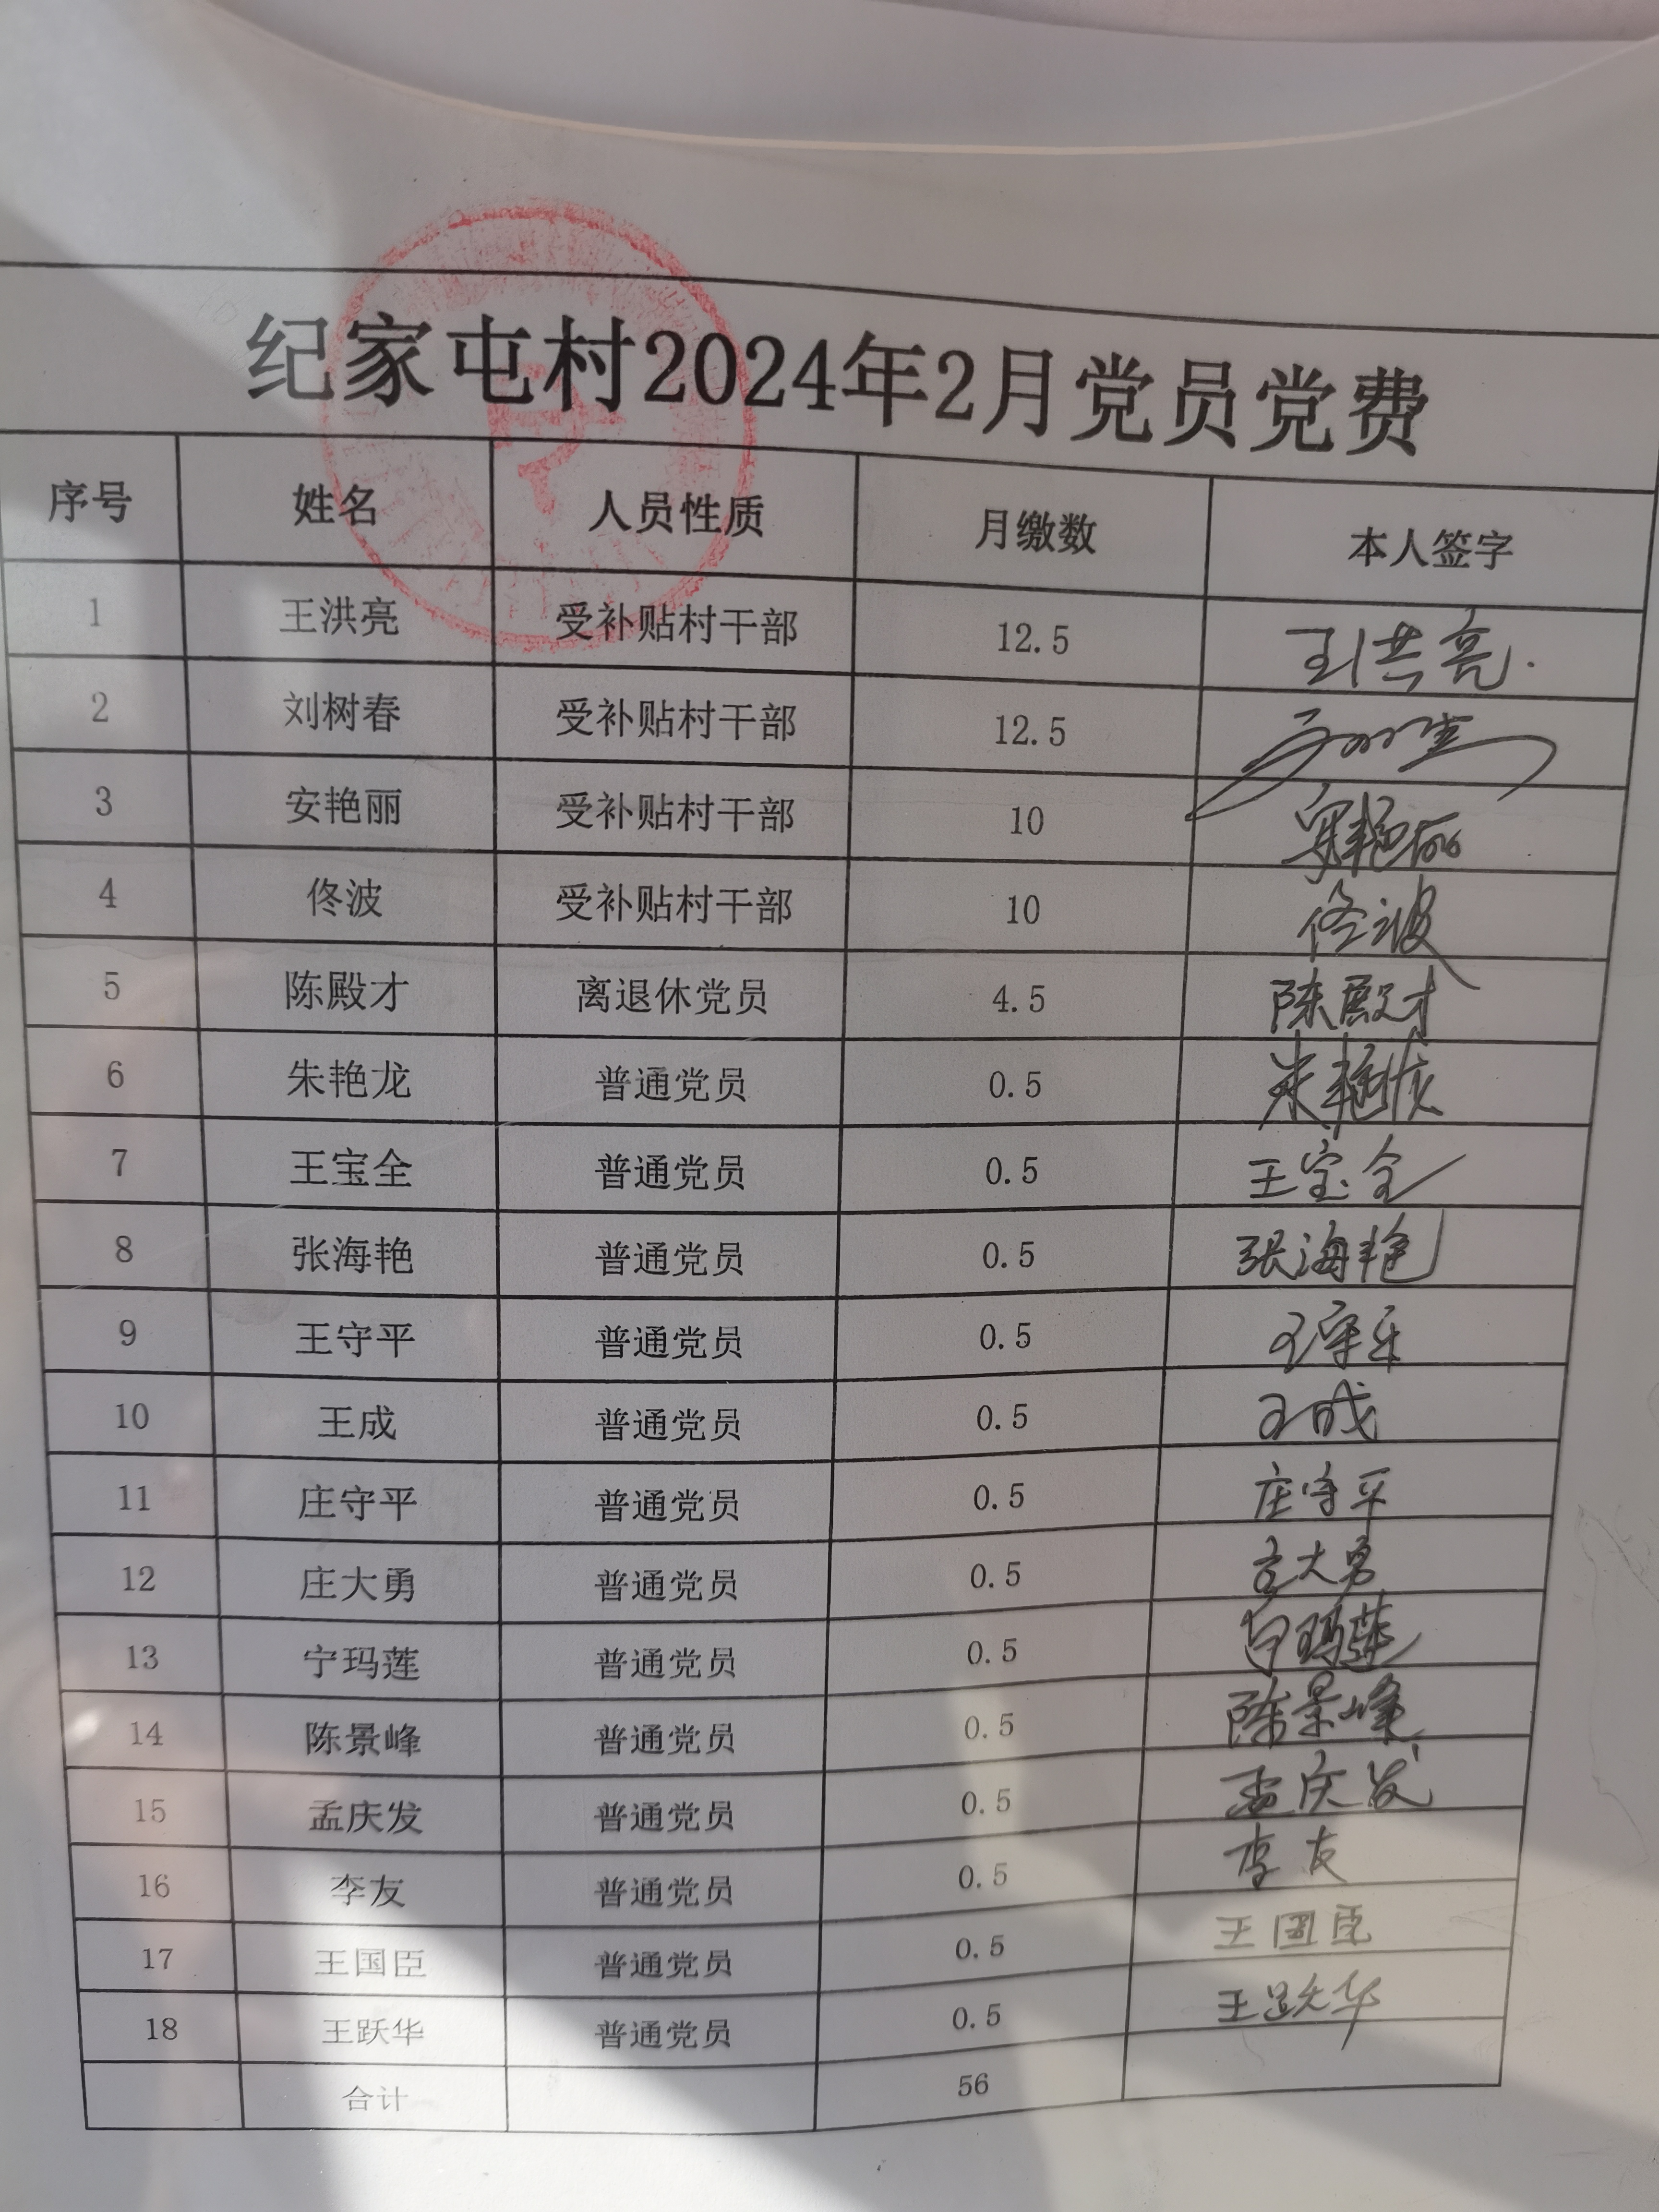 纪家屯村2024年2月党员党费
序号 姓名 人员性质 月缴数 本人签字
1 王洪亮 受补贴村干部 12.5 王洪亮
2 刘树春 受补贴村干部 12.5
3 安艳丽 受补贴村干部 10 安艳丽
4 佟波 受补贴村干部 10 佟波
5 陈殿才 离退休党员 4.5 陈殿才
6 朱艳龙 普通党员 0.5 朱艳龙
7 王宝全 普通党员 0.5 王宝全
8 张海艳 普通党员 0.5 张海艳
9 王守平 普通党员 0.5 王守平
10 王成 普通党员 0.5 王成
11 庄守平 普通党员 0.5 庄守平
12 庄大勇 普通党员 0.5 庄大勇
13 宁玛莲 普通党员 0.5 宁玛莲
14 陈景峰 普通党员 0.5 陈景峰
15 孟庆发 普通党员 0.5 孟庆发
16 李友 普通党员 0.5 李友
17 王国臣 普通党员 0.5 王国臣
18 王跃华 普通党员 0.5 王跃华
合计 56